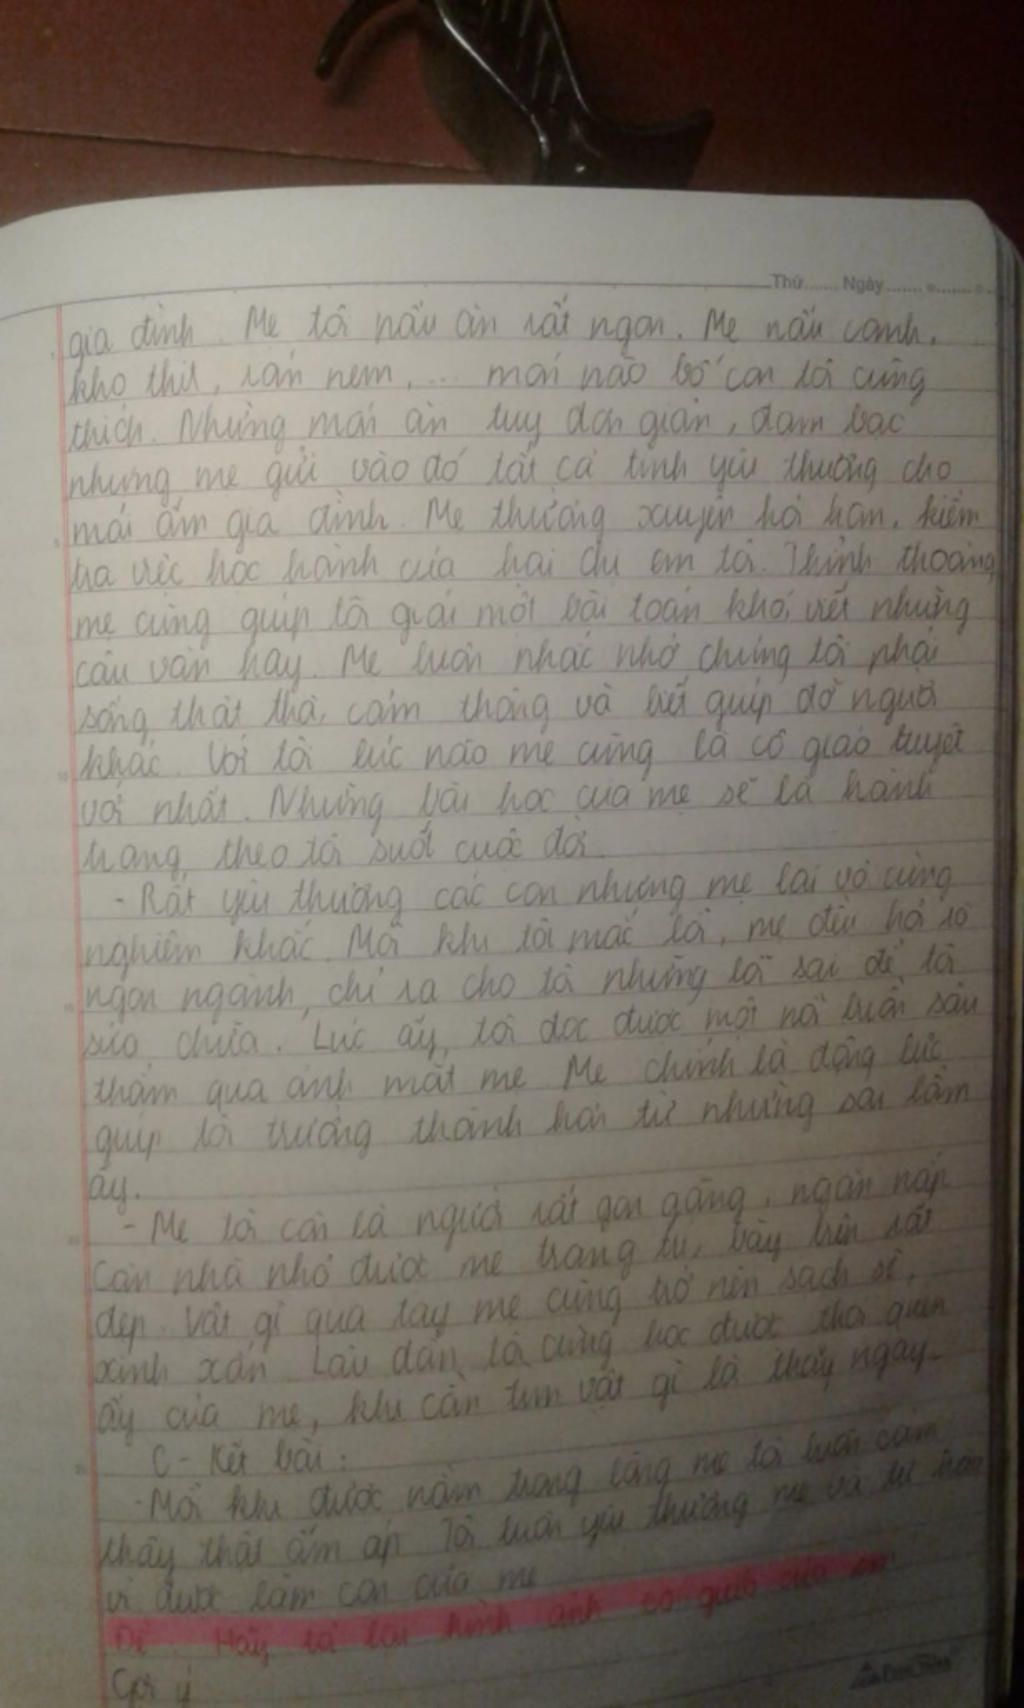 Thứ...... Ngày....... ........
gia đình. Mẹ tôi nấu ăn rất ngon. Mẹ nấu canh,
kho thịt, rán nem, ... món nào bố con tôi cũng
thích. Những món ăn tuy đơn giản, đạm bạc
nhưng mẹ gửi vào đó tất cả tình yêu thương cho
mái ấm gia đình. Mẹ thường xuyên hỏi han, kiểm
tra việc học hành của hai chị em tôi. Thỉnh thoảng
mẹ cũng giúp tôi giải một bài toán khó, viết những
câu văn hay. Mẹ luôn nhắc nhở chúng tôi phải
sống thật thà, cảm thông và biết giúp đỡ người
khác. Với tôi lúc nào mẹ cũng là cô giáo tuyệt
vời nhất. Những bài học của mẹ sẽ là hành
trang theo tôi suốt cuộc đời.
- Rất yêu thương các con nhưng mẹ lại vô cùng
nghiêm khắc. Mỗi khi tôi mắc lỗi, mẹ đều hỏi rõ
ngọn ngành, chỉ ra cho tôi những lỗi sai để tôi
sửa chữa. Lúc ấy, tôi đọc được một nỗi buồn sâu
thẳm qua ánh mắt mẹ. Mẹ chính là động lực
giúp tôi trưởng thành hơn từ những sai lầm
ấy.
- Mẹ tôi còn là người rất gọn gàng, ngăn nắp
Căn nhà nhỏ được mẹ trang trí, bày trên rất
đẹp. Vật gì qua tay mẹ cũng trở nên sạch sẽ,
xinh xắn. Lâu dần, tôi cũng học được thói quen
ấy của mẹ, khi cần tìm vật gì là thấy ngay.
C - Kết bài:
- Mỗi khi được nằm trong lòng mẹ tôi luôn cảm
thấy thật ấm áp. Tôi luôn yêu thương mẹ và tự hào
vì được làm con của mẹ
Đề: Hãy tả lại hình ảnh cô giáo của em
Gợi ý